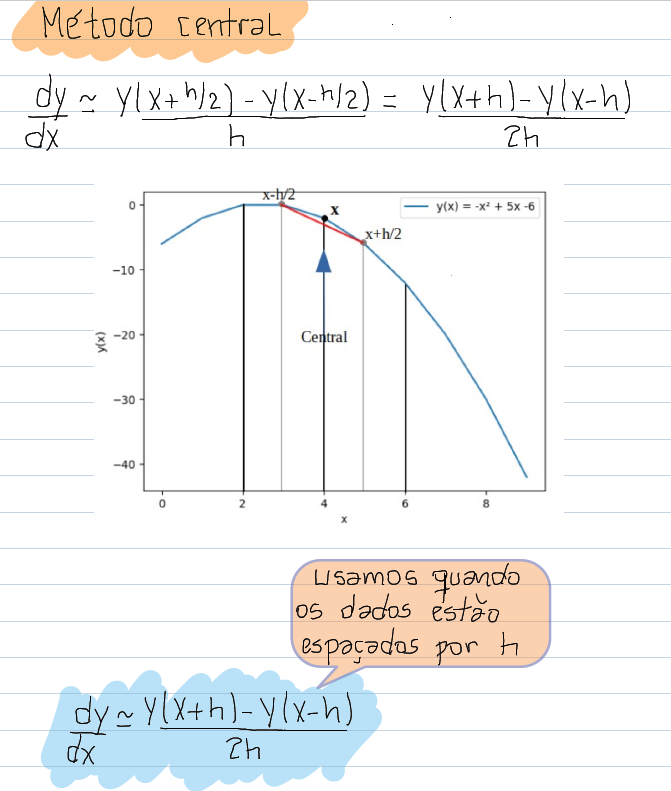 Método central
dy/dx ≃ y(x+h/2)-y(x-h/2)/h = y(x+h)-y(x-h)/2h
x-h/2
x
y(x) = -x² + 5x -6
x+h/2
Central
0
−10
−20
−30
−40
y(x)
0 2 4 6 8
x
usamos quando
os dados estão
espaçados por h
dy/dx ≃ y(x+h)-y(x-h)/2h